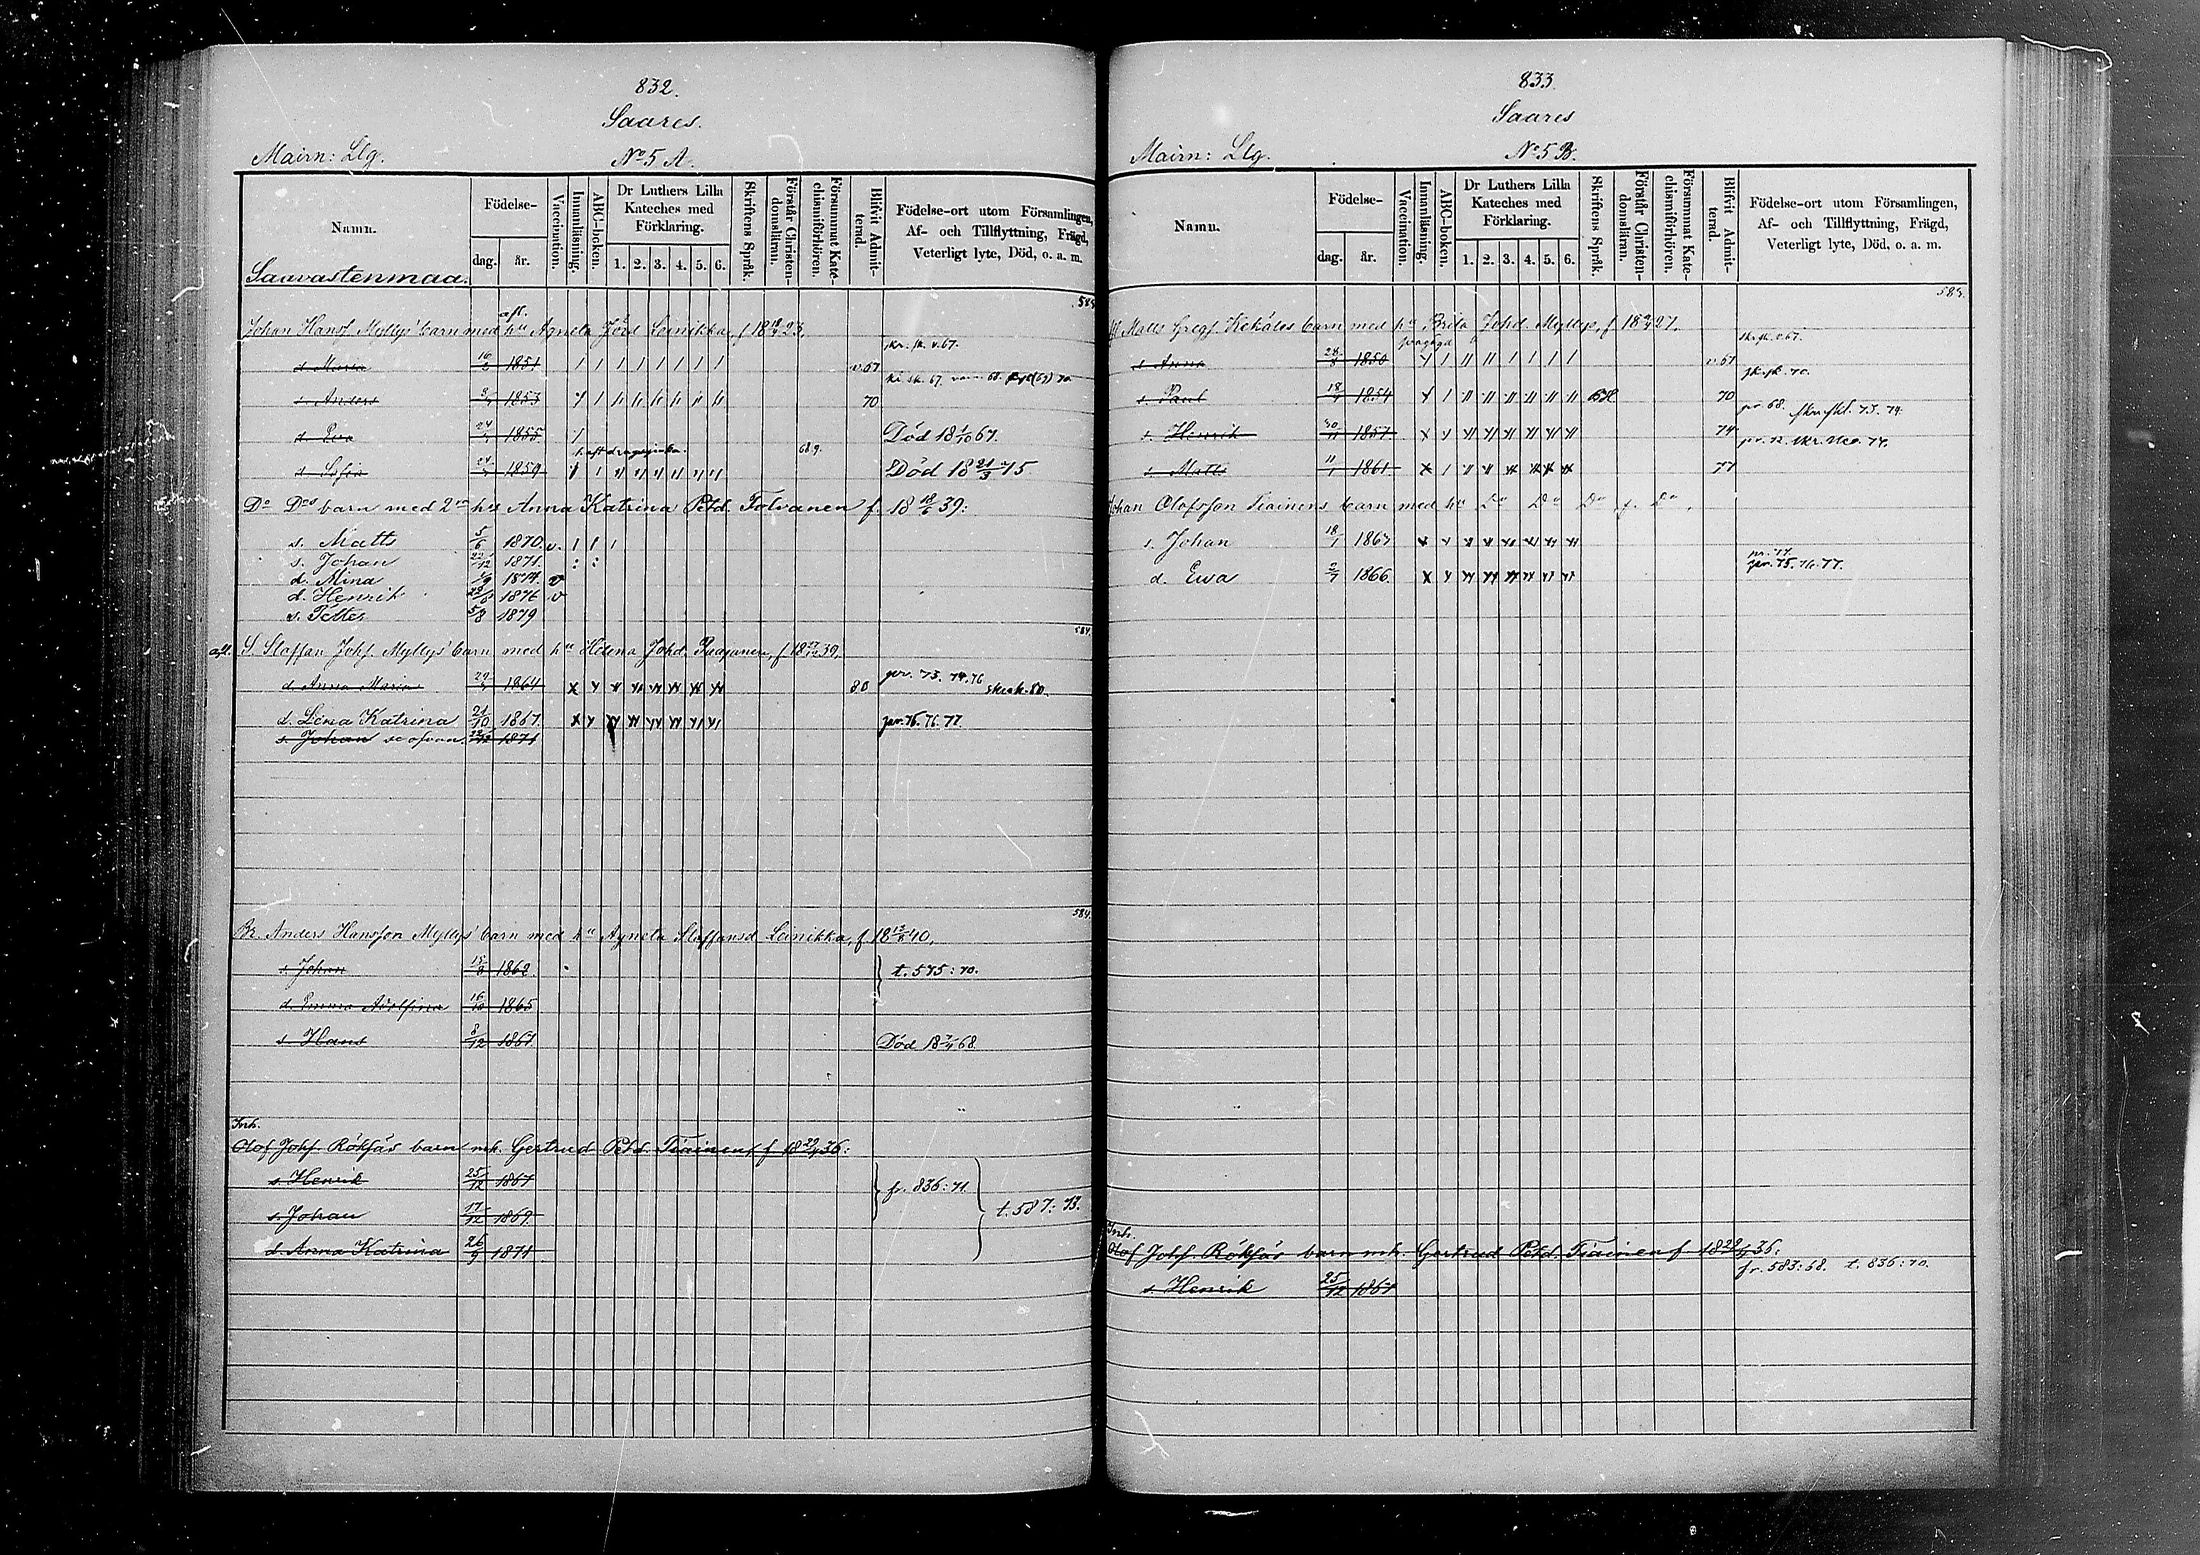 832.
Saares.
Mairn: Llg.
No 5 A.
Namn.
Födelse-
dag.
år.
Vaccination.
Innanläsning.
ABC-boken.
Dr Luthers Lilla
Kateches med
Förklaring.
1. 2. 3. 4. 5. 6.
Skriftens Språk.
Förstår Christen-
domsläran.
Försummat Kate-
chismiförhören.
Blifvit Admit-
terad.
Födelse-ort utom Församlingen,
Af- och Tillflyttning, Frägd,
Veterligt lyte, Död, o. a. m.
Sauvastenmaa.
afl.
Johan Hansf. Myllys' barn med hu Agneta Leinikka, f. 18 23,
d. Maria 1851 v. 67
s. Anders 1853 70
d. Eva 24 1855 Död 18 1/10 67.
d. Sofia 1859 68 9. Död 18 21/3 75
Do Dos barn med 2ra hu Anna Katrina Petd. Tolvanen f. 18 18/6 39:
s. Matts 5/6 1870. v.
s. Johan 22/12 1871.
d. Mina 1/9 1874. v
d. Henrik 1876 v
s. Petter 5/8 1879
584.
afl. S. Staffan Johf. Myllys' barn med hu Helena Johd. Paajanen, f. 18 39,
d. Anna Maria 1864 80 73. 74. 76
d. Lena Katrina 21/10 1867. 75. 76. 77.
s. Johan se ofvan. 22/12 1871
584.
Br. Anders Hansson Myllys' barn med hu Agneta Staffansd Leinikka, f. 18 40,
s. Johan 1862 t. 575: 70.
d. Emma Adolfina 16/10 1865
s. Hans 8/12 1867. Död 18 7/4 68.
Inh.
Olof Johf. Rökfäs barn mh. Gertrud Petd. Tiainen, f. 18 36:
s. Henrik 25/12 1867 fr. 836: 71
s. Johan 17/12 1869. t. 587: 73.
d. Anna Katrina 26/9 1871
833.
Saares
Mairn: Llg.
No 5 B.
Namn.
Födelse-
dag.
år.
Vaccination.
Innanläsning.
ABC-boken.
Dr Luthers Lilla
Kateches med
Förklaring.
1. 2. 3. 4. 5. 6.
Skriftens Språk.
Förstår Christen-
domsläran.
Försummat Kate-
chismiförhören.
Blifvit Admit-
terad.
Födelse-ort utom Församlingen,
Af- och Tillflyttning, Frägd,
Veterligt lyte, Död, o. a. m.
Matts Gregf. Kekäles barn med hu Brita Johd. Myllys, f. 18 27,
s. Anna 1850 v. 67
s. Paul 18 1854 70
s. Henrik 30/11 1857 74
s. Matts 11/1 1861 77
Johan Olofsson Tiainens barn med hu Do Do Do, f. Do,
s. Johan 18/1 1863
d. Ewa 2/7 1866. 75. 76. 77.
Inh.
Olof Johf. Rökfäs barn mh. Gertrud Petd. Tiainen f. 18 36:
fr. 583: 68. t. 836: 70.
s. Henrik 25/12 1867